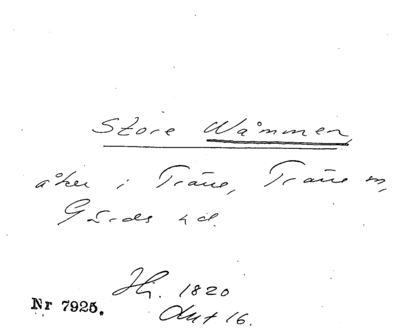 Store Wåmmen,
åker i Träne, Träne sn,
Gärds hd.
Hr. 1820
Akt 16.
Nr 7925.